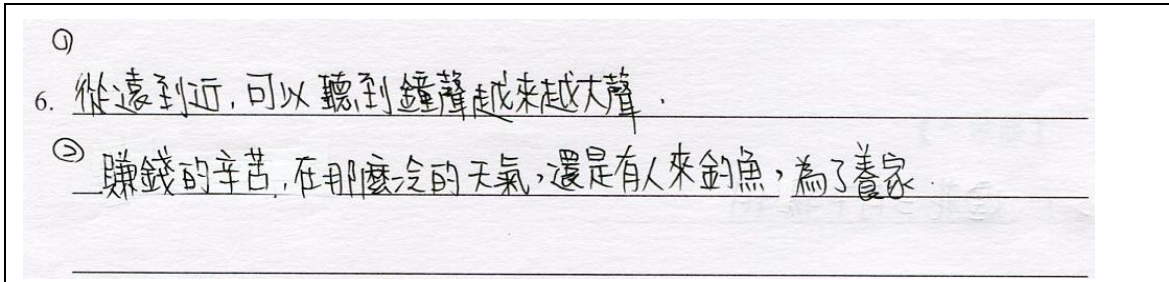 ①
6. 從遠到近，可以聽到鐘聲越來越大聲．
② 賺錢的辛苦，在那麼冷的天氣，還是有人來釣魚，為了養家．